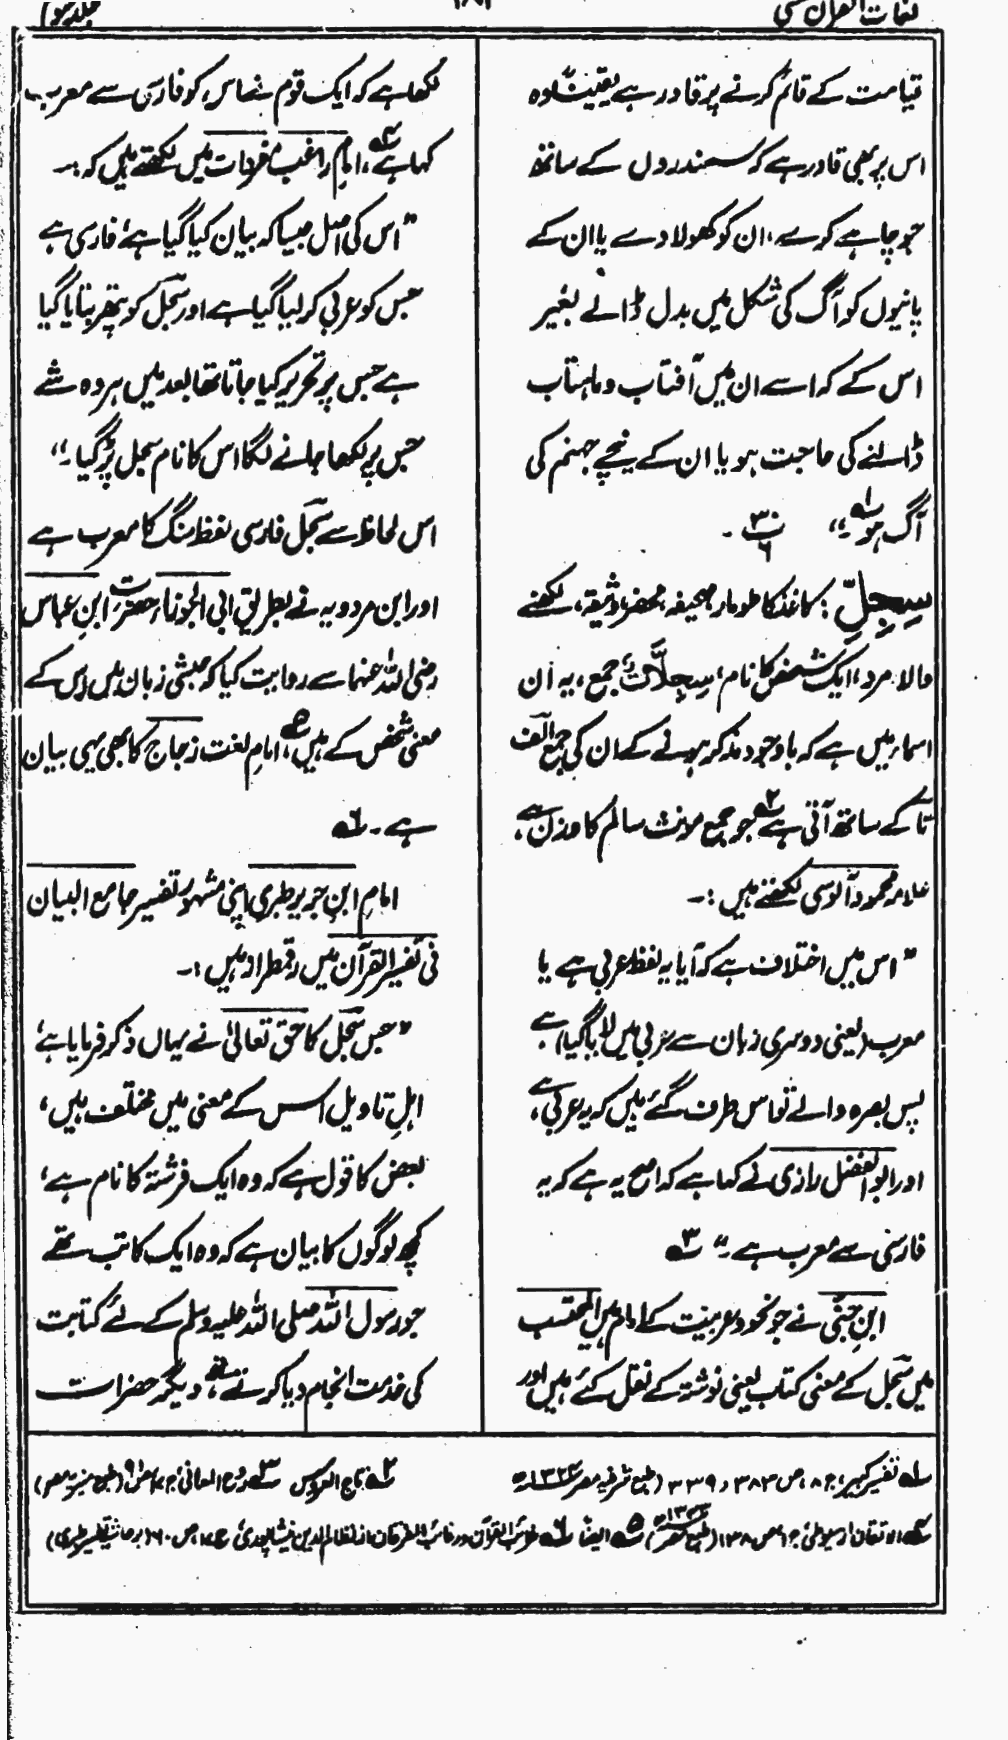 لغات القرآن
جلد سوم
قیامت کے قائم کرنے پر قادر ہے یقیناً وہ
اس پر بھی قادر ہے کہ سمندروں کے ساتھ
جو چاہے کرے، ان کو کھولا دے یا ان کے
پانیوں کو آگ کی شکل میں بدل ڈالے بغیر
اس کے کہ اسے ان میں آفتاب و ماہتاب
ڈالنے کی حاجت ہو یا ان کے نیچے جہنم کی
آگ ہو۔" ۱ے ۳۰/۶ ۔
سِجِلِّ : کاغذ کا طومار، صحیفہ، محضر، وثیقہ، لکھنے
والا، مرد، ایک شخص کا نام، سِجِلَّاتٌ جمع، یہ اُن
اسماء میں ہے کہ باوجود مذکر ہونے کے ان کی جمع الف
تا کے ساتھ آتی ہے ۲ے جو جمع مونث سالم کا وزن ہے،
علامہ محمود آلوسی لکھتے ہیں :۔
" اس میں اختلاف ہے کہ آیا یہ لفظ عربی ہے یا
معرب (یعنی دوسری زبان سے عربی میں لایا گیا) ہے
پس بصرہ والے تو اس طرف گئے ہیں کہ یہ عربی ہے،
اور ابو الفضل رازی نے کہا ہے کہ اصح یہ ہے کہ یہ
فارسی سے معرب ہے ۔" ۳ے
ابنِ جنّی نے جو نحو و عربیت کے امام ہیں المحتسب
میں سجل کے معنی کتاب یعنی نوشتہ کے نقل کئے ہیں اور
لکھا ہے کہ ایک قوم نے اس کو فارسی سے معرب
کہا ہے ۴ے، امام راغب مفردات میں لکھتے ہیں کہ :۔
" اس کی اصل جیسا کہ بیان کیا گیا ہے فارسی ہے
جس کو عربی کر لیا گیا ہے اور سجل کو پتھر بتایا گیا
ہے جس پر تحریر کیا جاتا تھا بعد میں ہر وہ شے
جس پر لکھا جانے لگا اس کا نام سجل پڑ گیا ۔"
اس لحاظ سے سجل فارسی لفظ سنگ کا معرب ہے
اور ابن مردویہ نے بطریق ابی الجوزاء حضرت ابنِ عباس
رضی اللہ عنہما سے روایت کیا کہ حبشی زبان میں اس کے
معنی شخص کے ہیں ۵ے، امام لغت زجاج کا بھی یہی بیان
ہے ۔ ۶ے
امام ابن جریر طبری اپنی مشہور تفسیر جامع البیان
فی تفسیر القرآن میں رقمطراز ہیں :۔
" جس سجل کا حق تعالیٰ نے یہاں ذکر فرمایا ہے
اہلِ تاویل اس کے معنی میں مختلف ہیں،
بعض کا قول ہے کہ وہ ایک فرشتہ کا نام ہے،
کچھ لوگوں کا بیان ہے کہ وہ ایک کاتب تھے
جو رسول اللہ صلی اللہ علیہ وسلم کے لئے کتابت
کی خدمت انجام دیا کرتے تھے، دیگر حضرات
۱ے تفسیر کبیر، ج ۸، ص ۳۸۳ و ۳۳۹ (طبع شرفیہ مصر ۱۳۲۴ھ ۲ے تاج العروس ۳ے روح المعانی، ج ۱۷، ص ۹۱ (طبع منیریہ مصر)
۴ے الاتقان از سیوطی، ج ۱، ص ۱۳۸ (طبع مصر) ۵ے ایضاً ۶ے غرائب القرآن ورغائب الفرقان از نظام الدین نیشاپوری، ج ۱۷، ص ۶۰ (برحاشیہ تفسیر طبری)